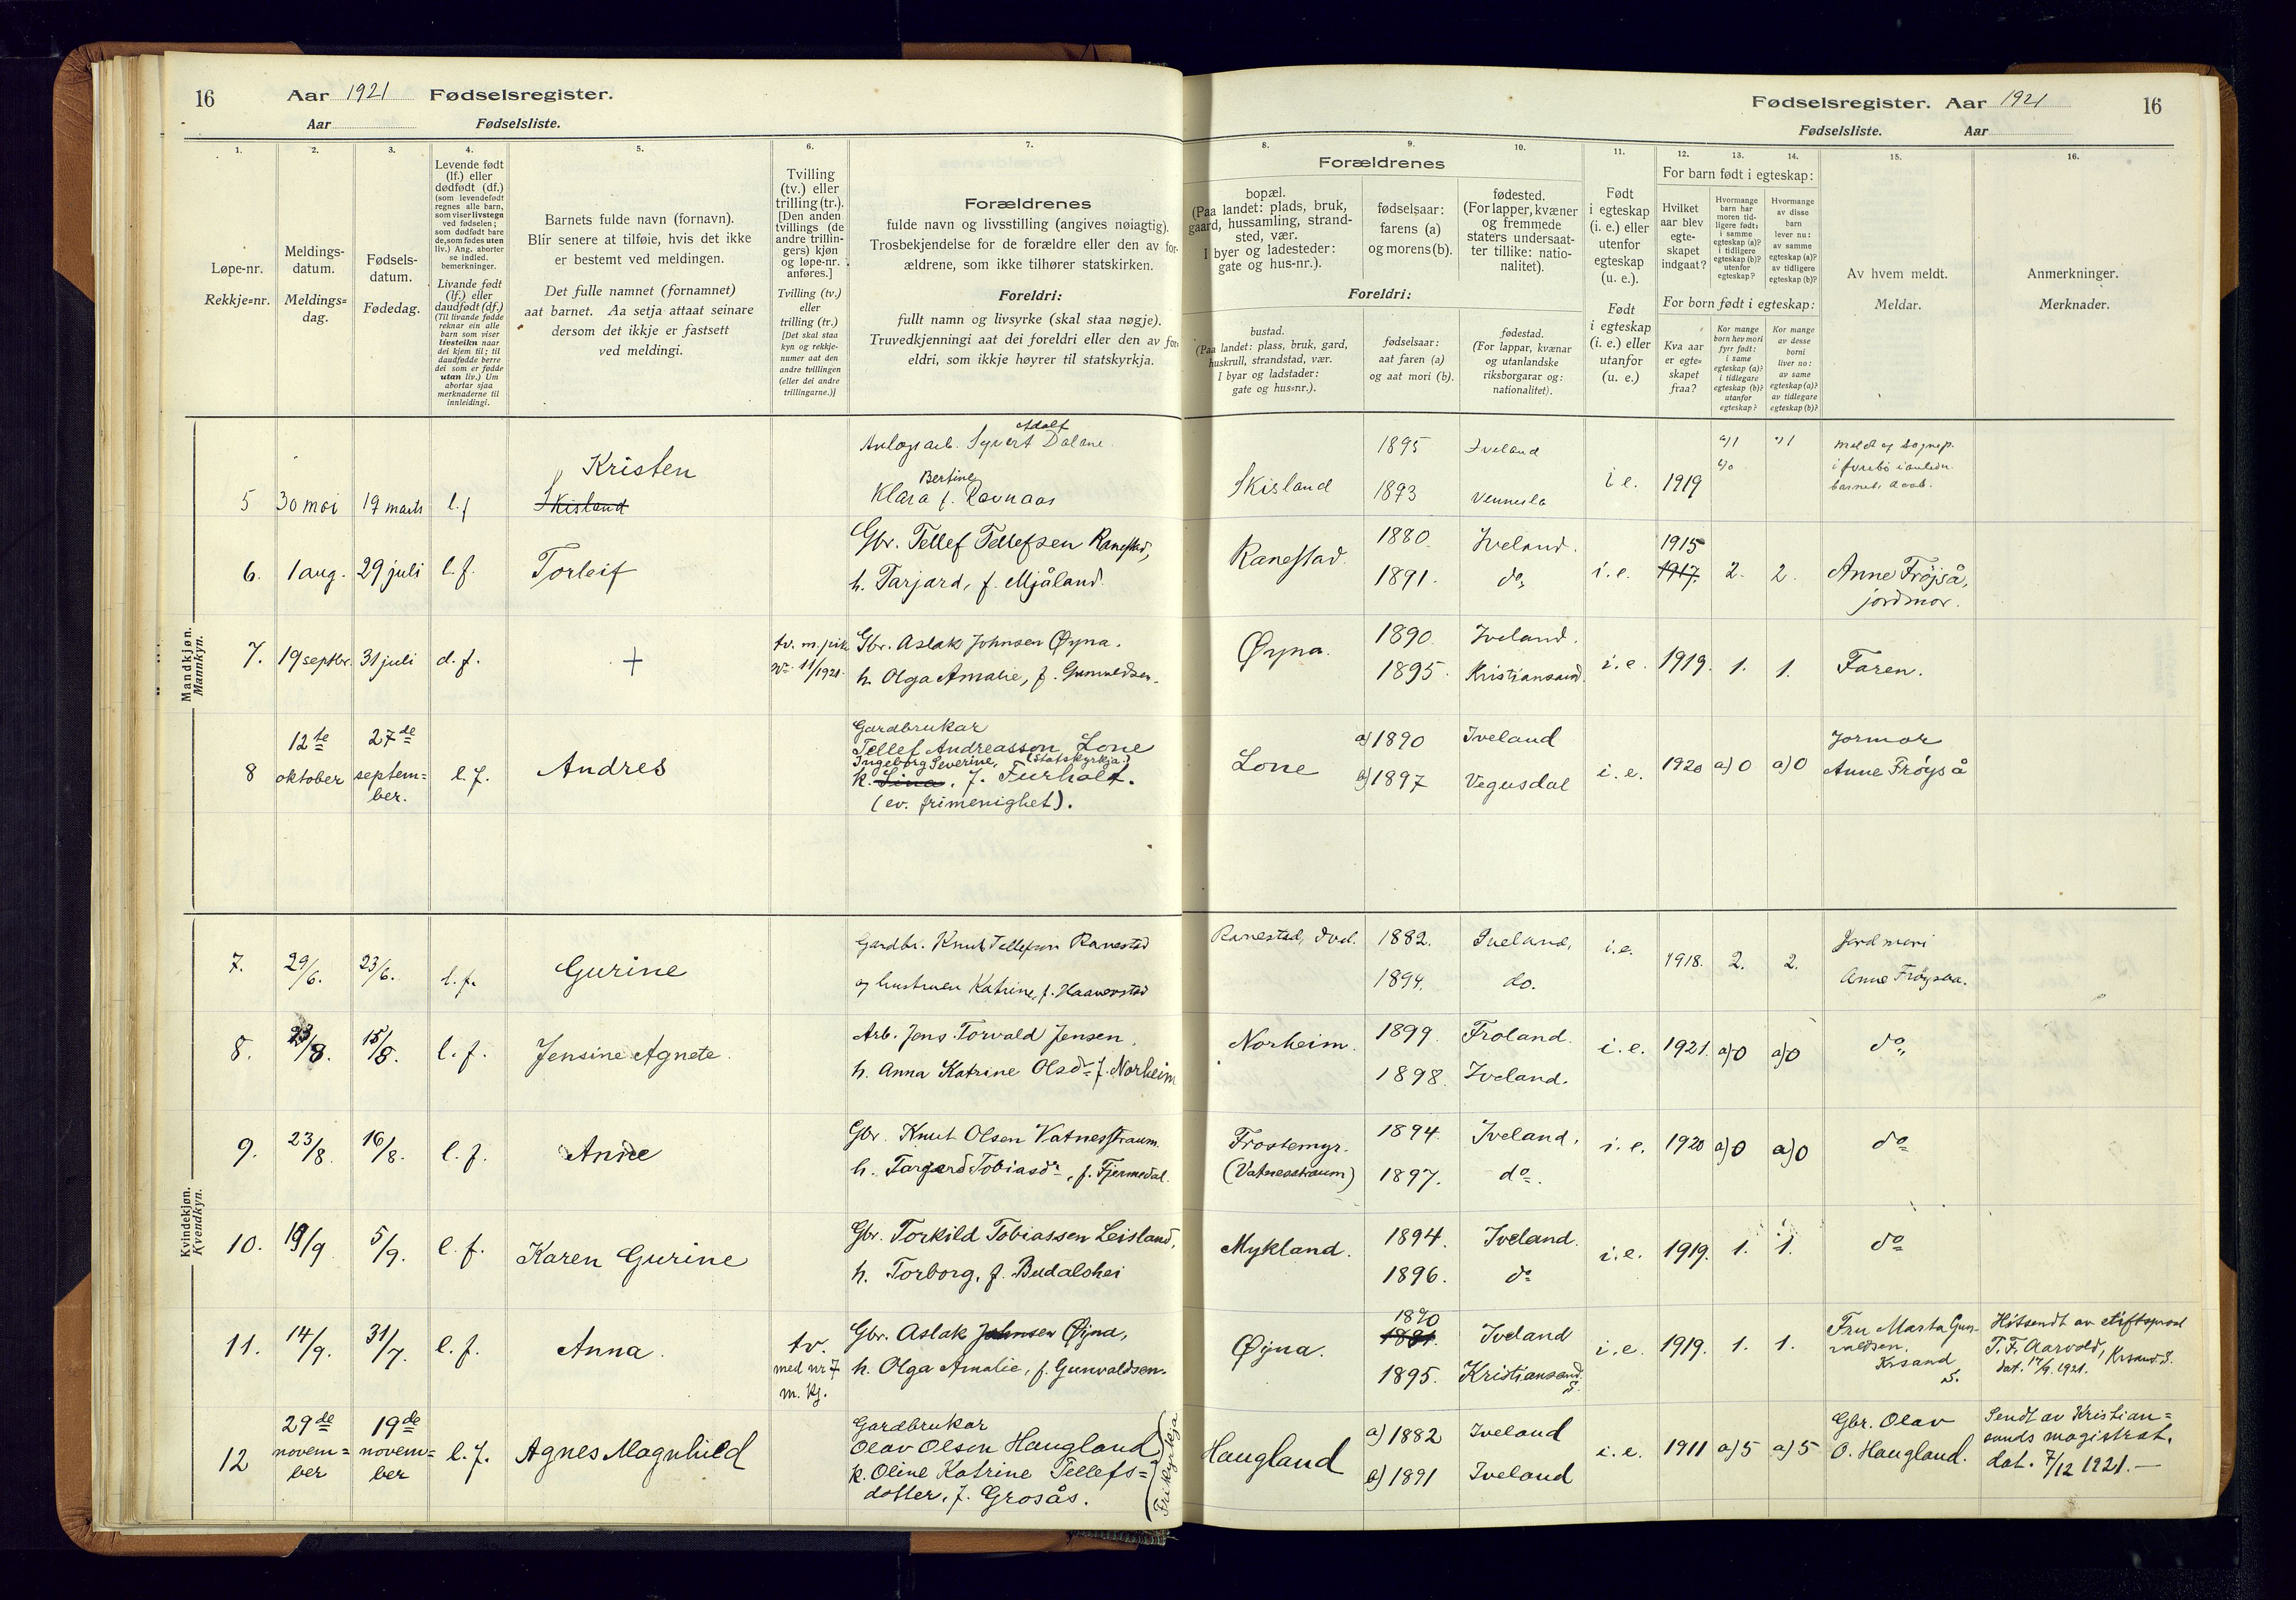 16
Aar 1921 Fødselsregister.
Aar Fødselsliste.
Fødselsregister. Aar 1921
Fødselsliste. Aar
16
1.
Løpe-nr.
Rekkje=nr.
2.
Meldings-
datum.
Meldings=
dag.
3.
Fødsels-
datum.
Fødedag.
4.
Levende født
(lf.) eller
dødfødt (df.)
(som levendefødt
regnes alle barn,
som viser livstegn
ved fødselen;
som dødfødt bare
de, som fødes uten
liv.) Ang. aborter
se indled.
bemerkninger.
Livande født
(lf.) eller
daudfødt (df.)
(Til livande fødde
reknar ein alle
born som viser
livsteikn naar
dei kjem til; til
daudfødde berre
dei som er fødde
utan liv.) Um
abortar sjaa
merknaderne til
innleidingi.
5.
Barnets fulde navn (fornavn).
Blir senere at tilføie, hvis det ikke
er bestemt ved meldingen.
Det fulle namnet (fornamnet)
aat barnet. Aa setja attaat seinare
dersom det ikkje er fastsett
ved meldingi.
6.
Tvilling
(tv.) eller
trilling (tr.).
[Den anden
tvillings (de
andre trillin-
gers) kjøn
og løpe-nr.
anføres.]
Tvilling (tv.)
eller
trilling (tr.)
[Det skal staa
kyn og rekkje-
numer aat den
andre tvillingen
(eller dei andre
trillingarne.)]
7.
Forældrenes
fulde navn og livsstilling (angives nøiagtig).
Trosbekjendelse for de forældre eller den av for-
ældrene, som ikke tilhører statskirken.
Foreldri:
fullt namn og livsyrke (skal staa nøgje).
Truvedkjenningi aat dei foreldri eller den av for-
eldri, som ikkje høyrer til statskyrkja.
8.
Forældrenes
bopæl.
(Paa landet: plads, bruk,
gaard, hussamling, strand-
sted, vær.
I byer og ladesteder:
gate og hus-nr.).
Foreldri:
bustad.
(Paa landet: plass, bruk, gard,
huskrull, strandstad, vær.
I byar og ladstader:
gate og hus=nr.).
9.
fødselsaar:
farens (a)
og morens (b).
fødselsaar:
aat faren (a)
og aat mori (b).
10.
fødested.
(For lapper, kvæner
og fremmede
staters undersaat-
ter tillike: natio-
nalitet).
fødestad.
(For lappar, kvænar
og utanlandske
riksborgarar og:
nationalitet).
11.
Født
i egteskap
(i. e.) eller
utenfor
egteskap
(u. e.).
Født
i egteskap
(i. e.) eller
utanfor
(u. e.)
For barn født i egteskap:
12.
Hvilket
aar blev
egte-
skapet
indgaat?
13.
Hvormange
barn har
moren tid-
ligere født:
i samme
egteskap (a)?
i tidligere
egteskap (b)?
utenfor
egteskap?
14.
Hvormange
av disse
barn
lever nu:
av samme
egteskap (a)?
av tidligere
egteskap (b)?
For born født i egteskap:
Kva aar
er egte=
skapet
fraa?
Kor mange
born hev mori
fyrr født:
i same
egteskap (a)?
i tidlegare
egteskap (b)?
utanfor
egteskap?
Kor mange
av desse
borni
liver no:
av same
egteskap (a)?
av tidlegare
egteskap (b)?
15.
Av hvem meldt.
Meldar.
16.
Anmerkninger.
Merknader.
Mandkjøn.
Mannkyn.
5 30 mai 19 marts l.f
Kristen
Skisland
Anlægsarb. Syvert Adolf Dalane
Klara Bertine f. Ravnaas
Skisland 1895 Iveland
1893 Vennesla
i e. 1919 a) 1 b) 0 a) 1
meldt af sognep.
6. 1 aug. 29 juli l.f. Torleif
Gbr. Tellef Tellefsen Ranestad,
h. Tarjard, f. Mjåland.
Ranestad. 1880. Iveland.
1891. do.
i. e. 1915 1917. 2. 2.
Anne Frøjså,
jordmor.
7. 19 septbr. 31 juli d. f. +
tv. m. pike
No 11/1921.
Gbr. Aslak Johnsen Øyna.
h. Olga Amalie, f. Gunvaldsen.
Øyna. 1890. Iveland.
1895. Kristiansand.
i. e. 1919. 1. 1. Faren.
8 12te oktober 27de septem=
ber. l. f. Andres
Gardbrukar
Tellef Andreasson Lone
Ingeborg Severine, (statskyrkja.)
k. Lina, f. Furholt.
(ev. frimenighet).
Lone a) 1890 Iveland
b) 1897 Vegusdal
i. e. 1920 a) 0 a) 0
Jormor
Anne Frøyså
Kvindekjøn.
Kvendkyn.
7. 29/6. 23/6. l. f. Gurine
Gardbr. Knut Tellefsen Ranestad
og hustruen Katrine, f. Haaverstad
Ranestad, Ivel. 1882. Iveland,
1894. do.
i. e. 1918. 2. 2.
Jordmori
Anne Frøysaa.
8. 23/8. 15/8. l. f. Jensine Agnete.
Arb. Jens Torvald Jensen.
h. Anna Katrine Olsdr. f. Norheim
Norheim. 1899. Froland.
1898. Iveland.
i. e. 1921. a) 0 a) 0 do.
9. 23/8 16/8. l. f. Anne
Gbr. Knut Olsen Vatnesstraum.
h. Targerd Tobiasdr., f. Fjermedal.
Frostemyr.
(Vatnesstraum)
1894. Iveland.
1897. do.
i. e. 1920 a) 0 a) 0 do
10. 19/9 5/9. l. f. Karen Gurine
Gbr. Torkild Tobiassen Leisland,
h. Torborg, f. Budalshei
Mykland. 1894. Iveland.
1896. do
i. e. 1919. 1. 1. do
11. 14/9. 31/7. l. f. Anna.
tv.
med nr 7
m. kj.
Gbr. Aslak Johnsen Øyna,
h. Olga Amalie, f. Gunvaldsen.
Øyna. 1890 1881. Iveland
1895. Kristiansand S.
i. e. 1919. 1. 1.
Fru Marta Gun-
valdsen.
Krsand
S.
Hitsendt av stiftsprost
T. F. Aarvold, Krsand S.
dat. 17/9. 1921.
12 29de
novem=
ber 19de
novem=
ber l. f. Agnes Magnhild
Gardbrukar
Olav Olsen Haugland
k. Oline Katrine Tellefs=
dotter, f. Grosås.
Frikyrkja
Haugland a) 1882 Iveland
b) 1891 Iveland
i. e. 1911 a) 5 a) 5
Gbr. Olav
O. Haugland.
Sendt av Kristian=
sands magistrat.
dat. 7/12 1921.—